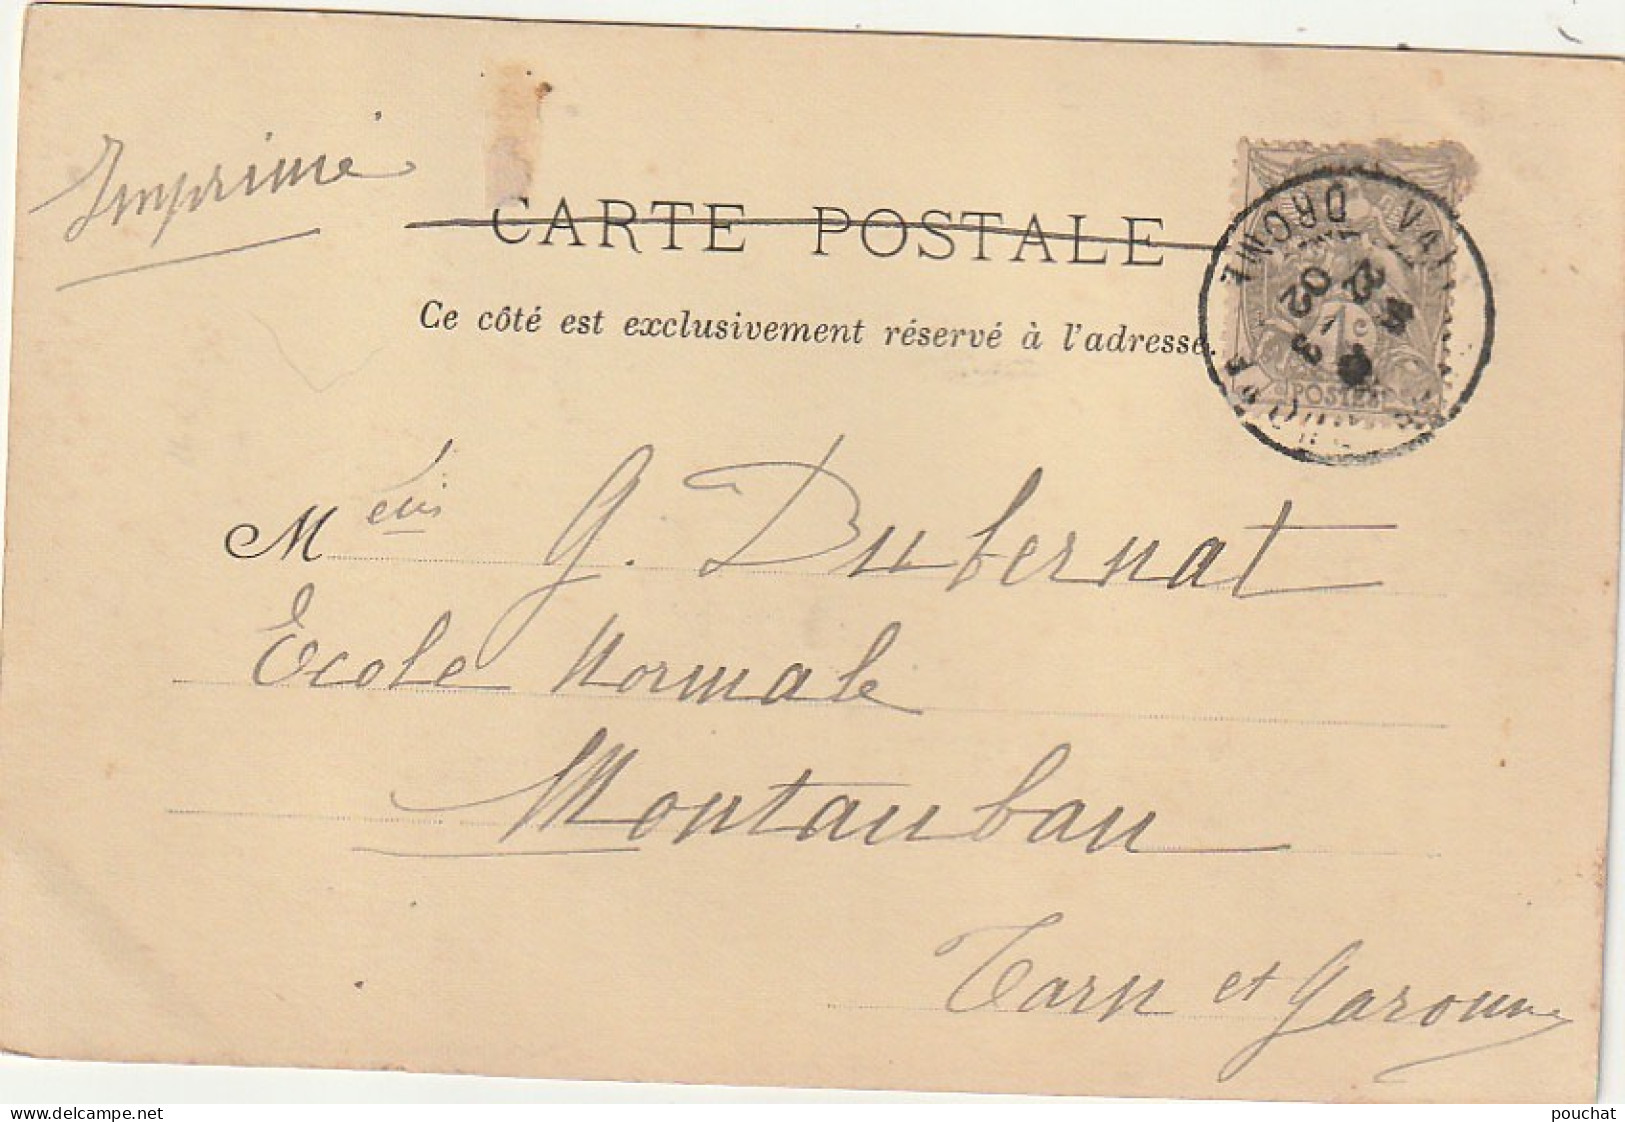 Imprimé
CARTE POSTALE
Ce côté est exclusivement réservé à l'adresse.
DROME
02
1c
POSTES
M G. Dubernat
Ecole Normale
Montauban
Tarn et Garonne
www.delcampe.net
pouchat